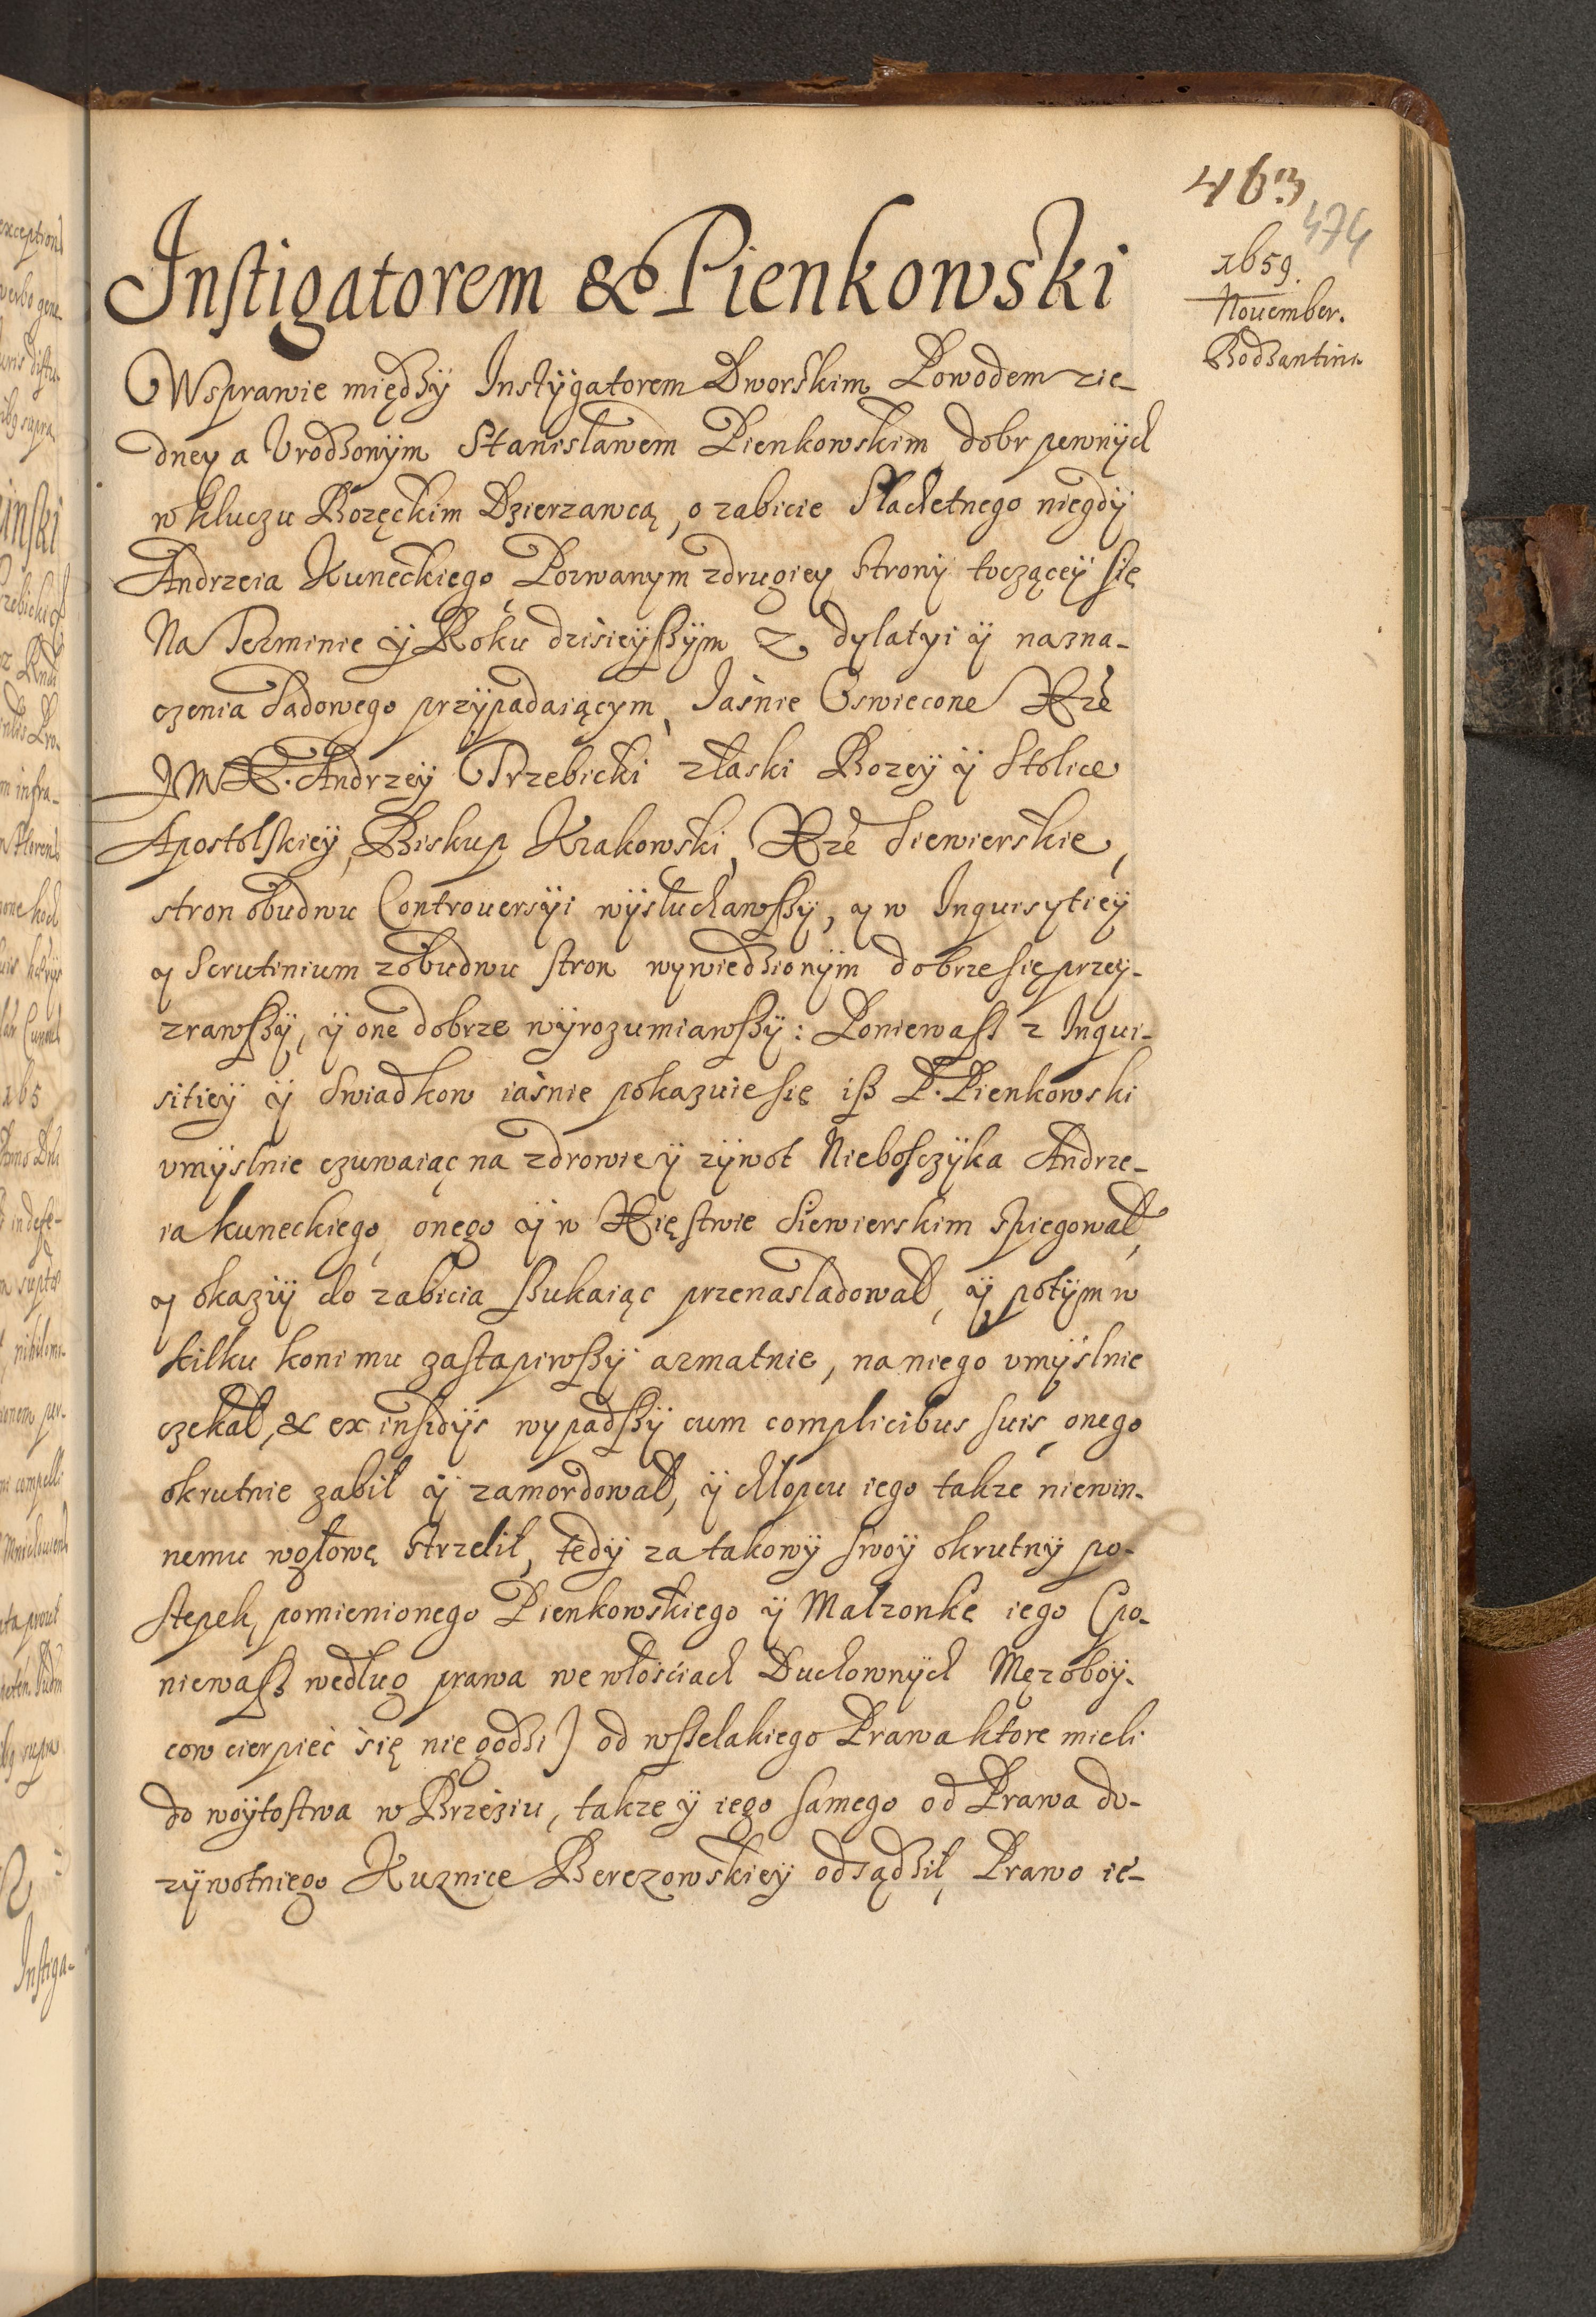 463
474
1659.
Nouember.
Bodzantina
Instigatorem & Pienkowski
Wsprawie między Instÿgatorem Dworskim Powodem zie-
dney a Vrodzonÿm Stanisławem Pienkowskim dobr pewnÿch
w kluczu Bozęckim Dzierzawcą, o zabicie Slachetnego niegdÿ
Andrzeia Kuneckiego, Pozwanym zdrugiey stronÿ toczącey się
Na Terminie ÿ Roku dzisieÿszÿm z dylatyi ÿ nazna-
czenia sadowego przÿpadaiącym, Jaśnie Oswiecone Xże
JMX. Andrzeÿ Trzebicki złaski Bozeÿ ÿ Stolice
Apostolskieÿ, Biskup Krakowski, Xże Siewierskie,
stron obudwu Controuersÿi wÿsłuchawszÿ, y w Inquisytieÿ
y Scrutinium zobudwu stron wywiedzionÿm dobrze się przeÿ-
zrawszÿ, ÿ one dobrze wÿrozumiawszÿ: Poniewasz z Inqui-
sitieÿ ÿ Swiadkow iaśnie pokazuie się isz P. Pienkowski
vmÿslnie czuwaiąc na zdrowie ÿ zÿwot Nieboszczÿka Andrze-
ia kuneckiego, onego ÿ w Xięstwie Siewierskim spiegował,
y okaziÿ do zabicia szukaiąc przenasladował, ÿ potÿm w
kilku koni mu zastapiwszÿ armatnie, na niego vmÿslnie
czekał, & ex insidÿs wypadszÿ cum complicibus suis, onego
okrutnie zabił ÿ zamordował, ÿ chłopcu iego takze niewin-
nemu wgłowę strzelił, tedÿ za takowÿ swoÿ okrutnÿ po-
stepek, pomienionego Pienkowskiego ÿ Malzonkę iego (po-
niewasz według prawa we włościach Duchownÿch Męzoboÿ-
cow cierpieć się nie godzi) od wszelakiego Prawa ktore mieli
do woÿtostwa w Brzeziu, takze ÿ iego samego od Prawa do-
zÿwotniego Kuznice Berezowskieÿ odsądził, Prawo ie-